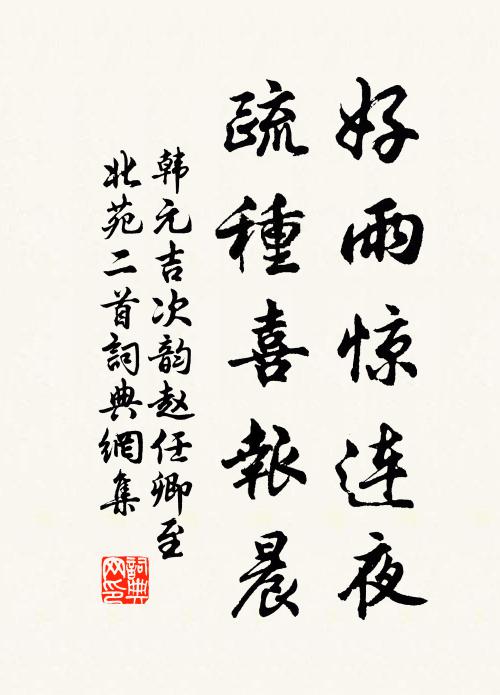 好雨惊连夜
疏種喜報晨
韩元吉次韵赵任卿至
北苑二首詞典網集
詞典
网印